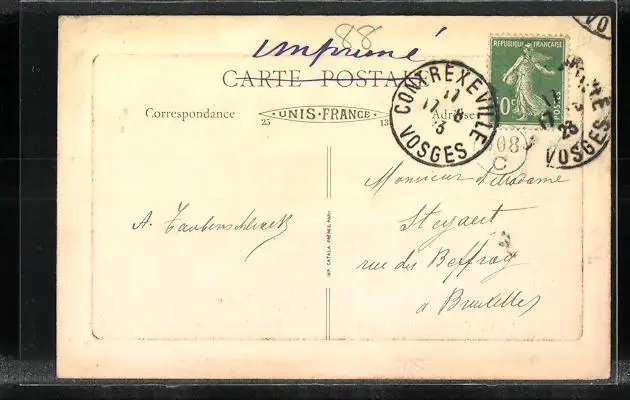 88
imprimé
CARTE POSTALE
Correspondance
UNIS-FRANCE
25
13
Adresse
CONTREXEVILLE
17
17 - 8
23
VOSGES
REPUBLIQUE FRANÇAISE
10c
POSTES
VOSGES
VO
908
C
Monsieur et Madame
Steyaert
rue du Beffroy
à Bruxelles
IMP. CATALA FRÈRES, PARIS